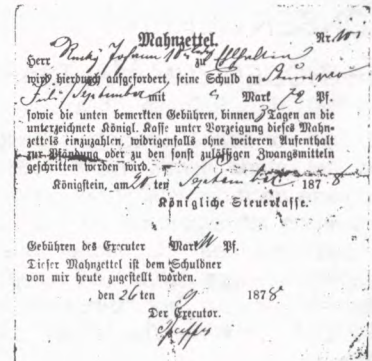 Mahnzettel. Nr. 101
Herr Johann zu
wird hierdurch aufgefordert, seine Schuld an
Juli/September mit Mark 72 Pf.
sowie die unten bemerkten Gebühren, binnen 3 Tagen an die
unterzeichnete Königl. Kasse unter Vorzeigung dieses Mahn-
zettels einzuzahlen, widrigenfalls ohne weiteren Aufenthalt
zur Pfändung oder zu den sonst zulässigen Zwangsmitteln
geschritten werden wird.
Königstein, am 20 ten September 1878
Königliche Steuerkasse.
Gebühren des Executor Mark Pf.
Dieser Mahnzettel ist dem Schuldner
von mir heute zugestellt worden.
den 26 ten 9 1878
Der Executor.